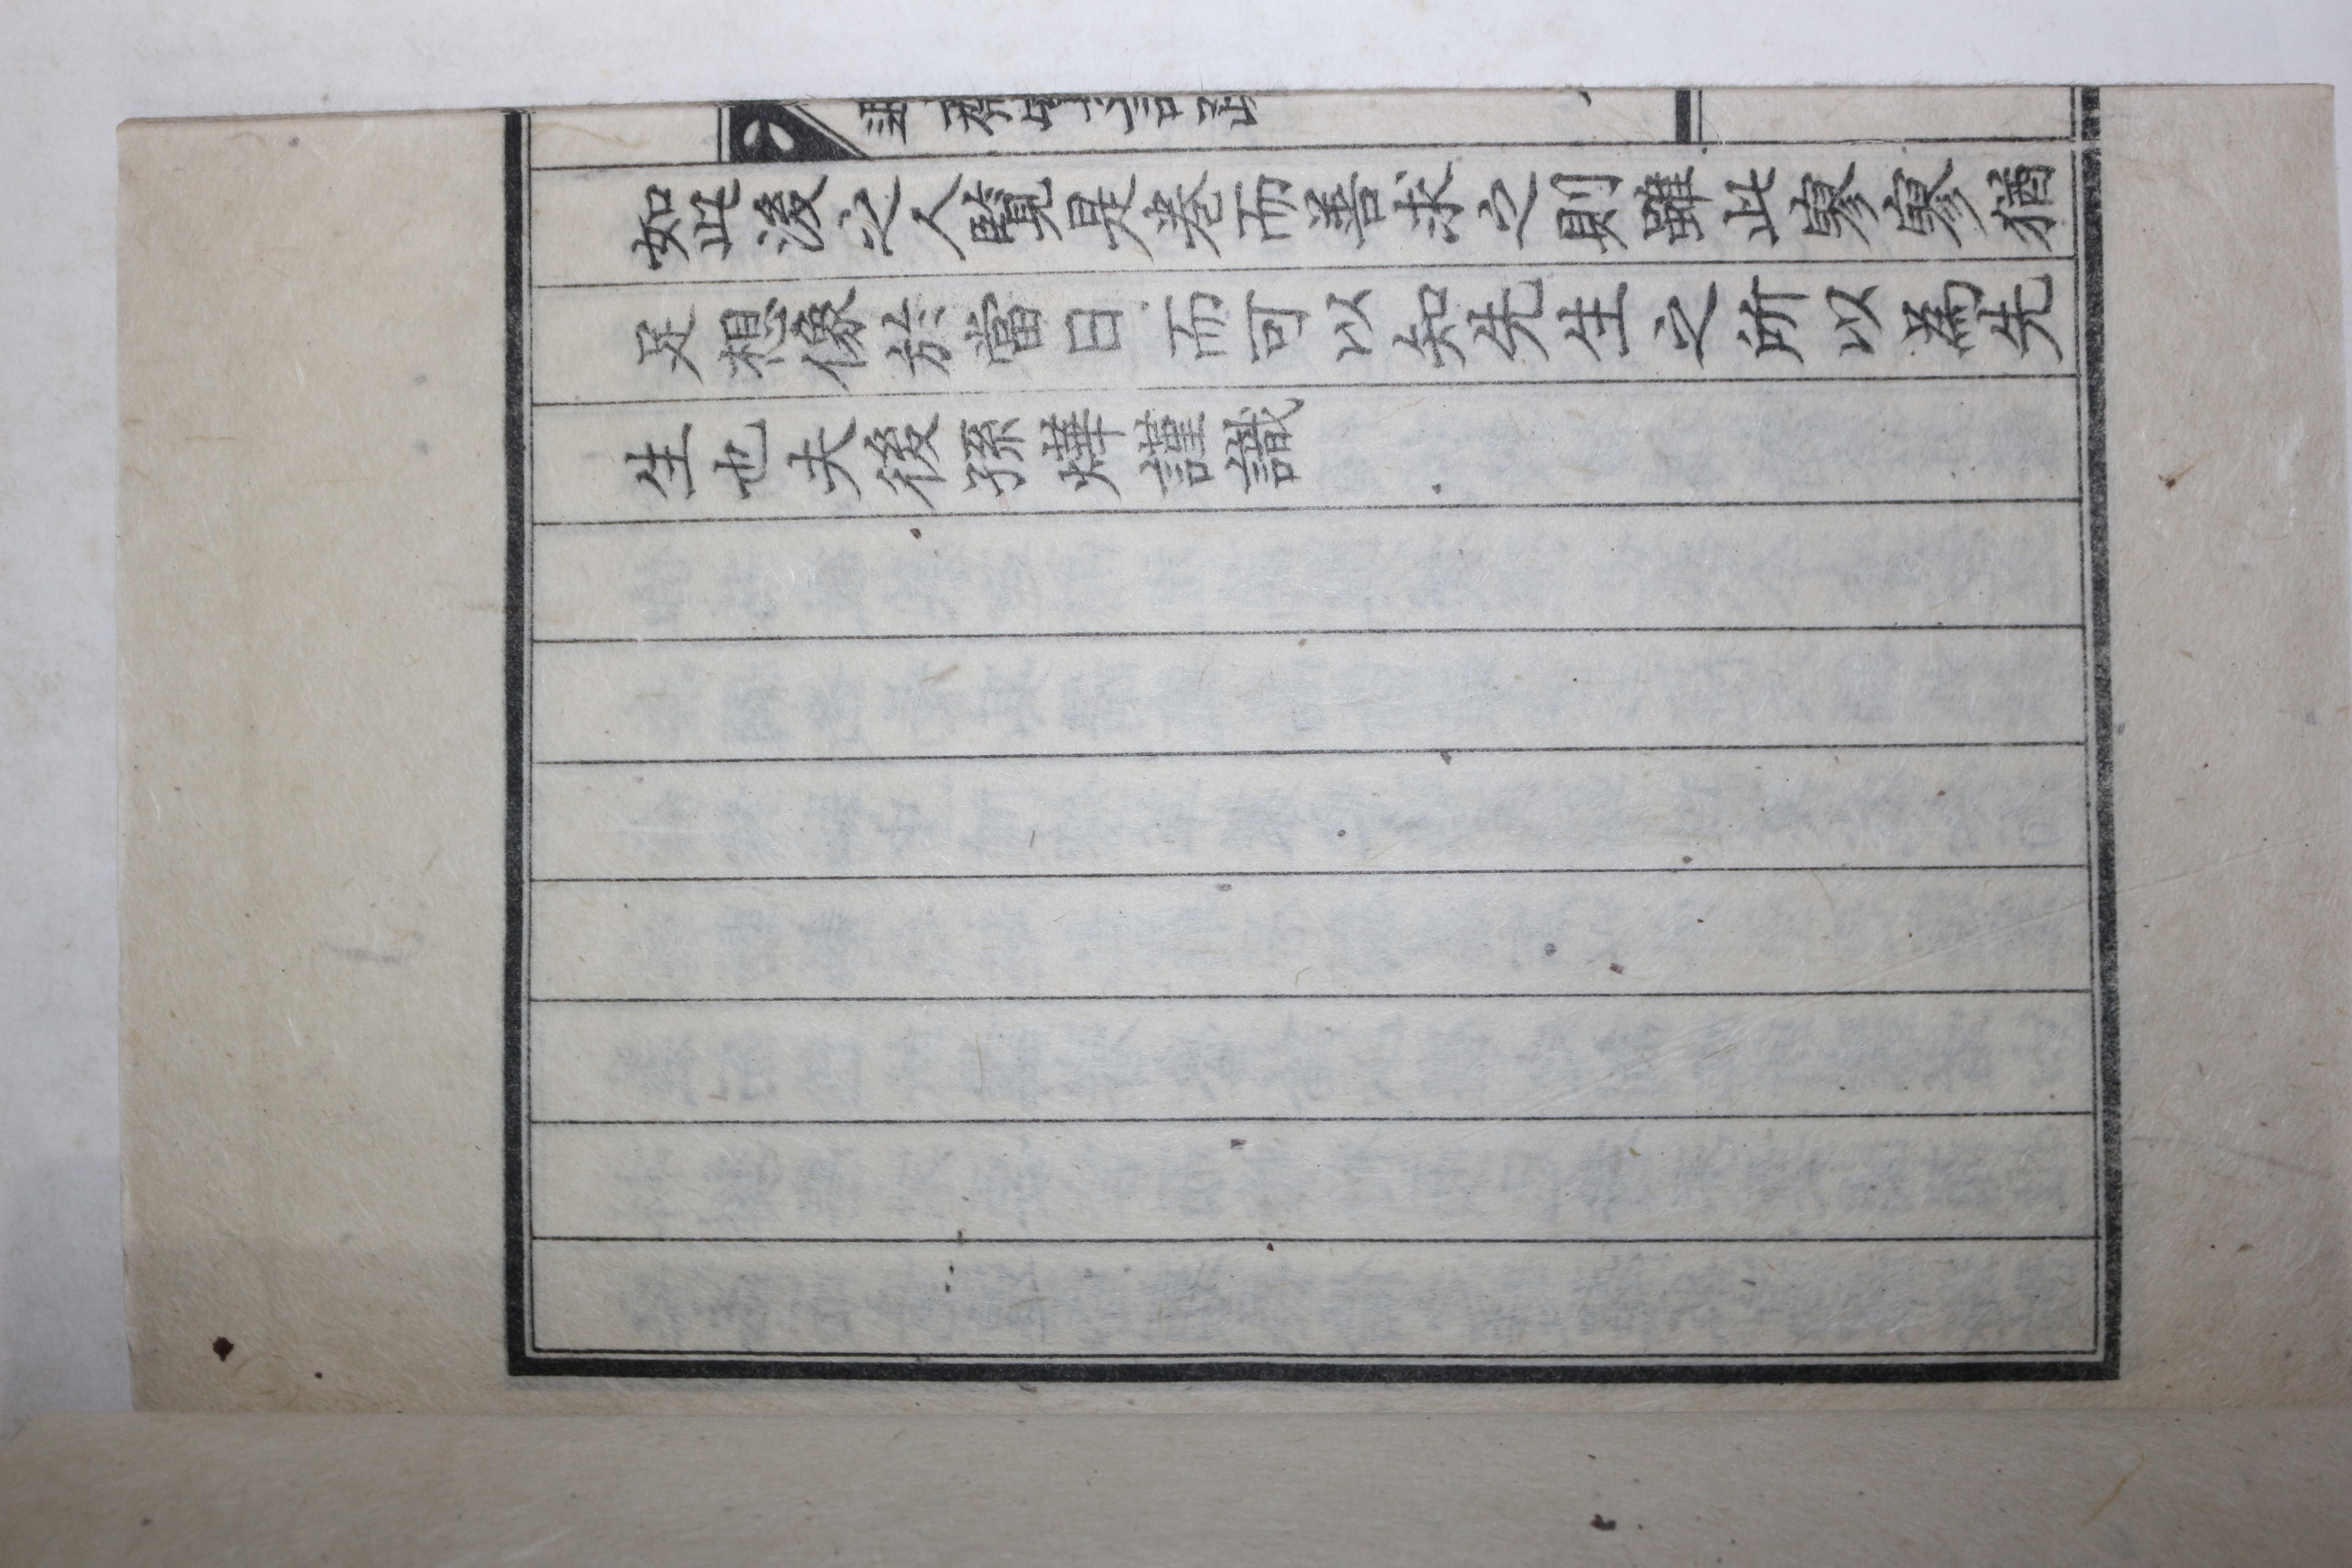 如此後之人覽是卷而善求之則雖此寥寥猶
足想像於當日而可以知先生之所以為先
生也夫後孫燁謹識